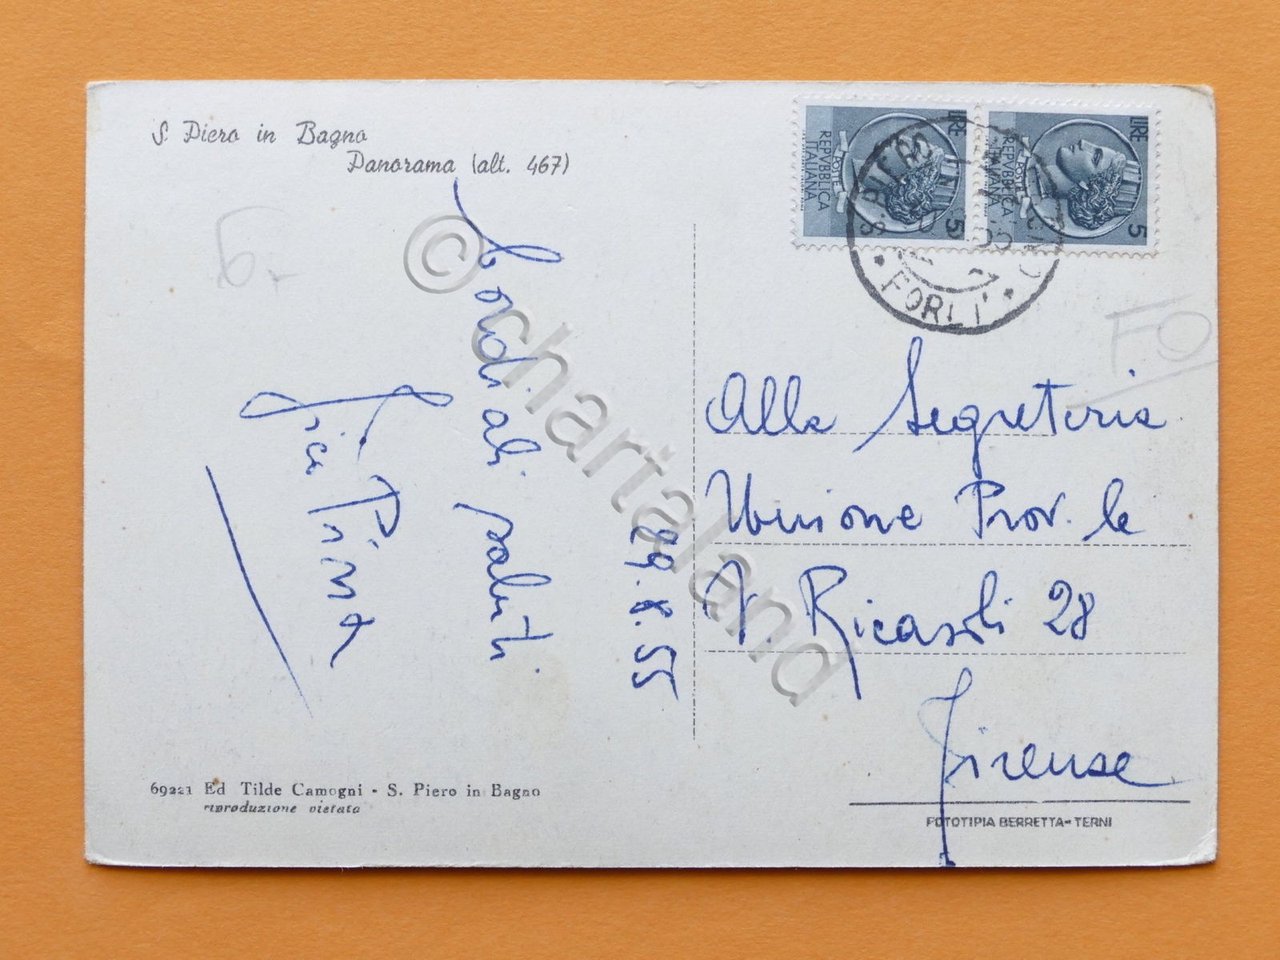 S. Piero in Bagno
Panorama (alt. 467)
6.-
Cordiali saluti
Pina
29.8.55
LIRE 5
REPVBBLICA ITALIANA
LIRE 5
REPVBBLICA ITALIANA
S. PIERO IN BAGNO
* FORLI' *
FO
Alla Segreteria
Unione Prov.le
V Ricasoli 28
Firense
69221 Ed Tilde Camogni - S. Piero in Bagno
riproduzione vietata
FOTOTIPIA BERRETTA - TERNI
© chartaland